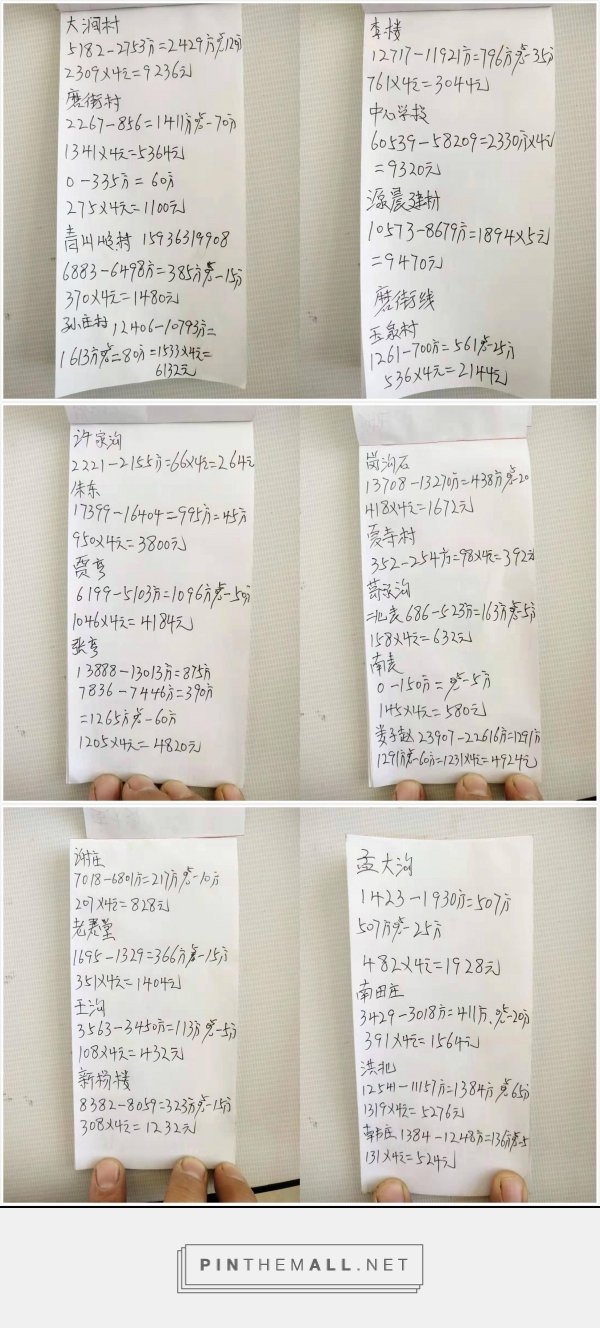 大涧村
5182-2753方=2429方免120方
2309×4元=9236元
磨街村
2267-856=1411方免-70方
1341×4元=5364元
0-335方=60方
275×4元=1100元
青山岭村 15936319908
6883-6498方=385方免-15方
370×4元=1480元
孙庄村 12406-10793方=
1613方免=80方=1533×4元=
6132元
李楼
12717-11921方=796方免-35方
761×4元=3044元
中心学校
60539-58209=2330方×4元
=9320元
源晨建材
10573-8679方=1894×5元
=9470元
磨街线
玉泉村
1261-700方=561免-25方
536×4元=2144元
许家沟
2221-2155方=66×4元=264元
朱东
17399-16404=995方=45方
950×4元=3800元
贾弯
6199-5103方=1096方免-50方
1046×4元=4184元
张弯
13888-13013方=875方
7836-7446方=390方
=1265方免-60方
1205×4元=4820元
岗沟石
13708-13270方=438方免-20
418×4元=1672元
夏寺村
352-254方=98×4元=392元
686-523方=163方免-5方
158×4元=632元
南表
0-150方=免-5方
145×4元=580元
娄子赵 23907-22616方=1291方
1291方免-60方=1231×4元=4924元
谢庄
7018-6801方=217方免-10方
207×4元=828元
1695-1329=366方免-15方
351×4元=1404元
王沟
3563-3450方=113方免-5方
108×4元=432元
新杨楼
8382-8059=323方免-15方
308×4元=1232元
孟大沟
1423-1930方=507方
507方免-25方
482×4元=1928元
南田庄
3429-3018方=411方、免-20方
391×4元=1564元
洪北
12541-11157方=1384方免65方
1319×4元=5276元
1384-1248方=136方免-5
131×4元=524元
PINTHEMALL.NET